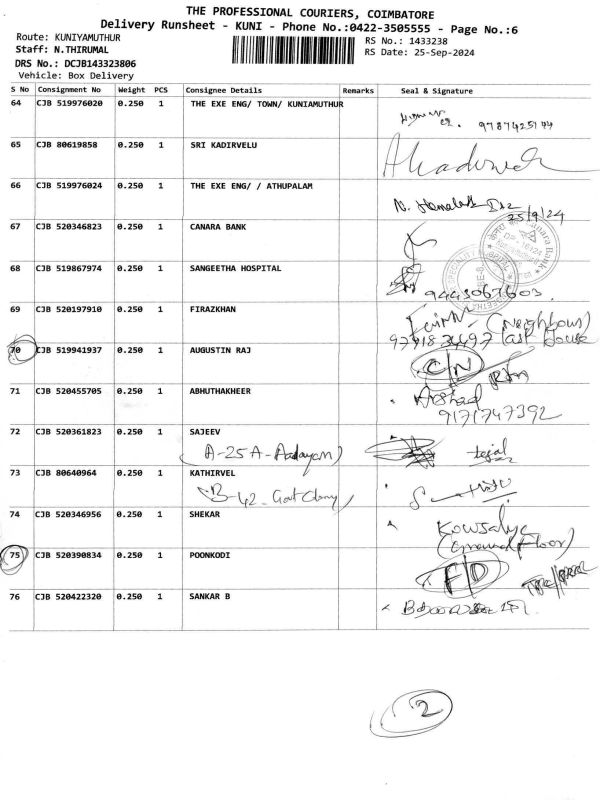 THE PROFESSIONAL COURIERS, COIMBATORE
Delivery Runsheet - KUNI - Phone No.:0422-3505555 - Page No.:6
Route: KUNIYAMUTHUR
RS No.: 1433238
Staff: N.THIRUMAL
RS Date: 25-Sep-2024
DRS No.: DCJB143323806
Vehicle: Box Delivery
S No Consignment No Weight PCS Consignee Details Remarks Seal & Signature
64 CJB 519976020 0.250 1 THE EXE ENG/ TOWN/ KUNIAMUTHUR
9787425144
65 CJB 80619858 0.250 1 SRI KADIRVELU
66 CJB 519976024 0.250 1 THE EXE ENG/ / ATHUPALAM
25/9/24
67 CJB 520346823 0.250 1 CANARA BANK
Canara Bank
68 CJB 519867974 0.250 1 SANGEETHA HOSPITAL
9443067603
69 CJB 520197910 0.250 1 FIRAZKHAN
(Neighbour)
Last House
70 CJB 519941937 0.250 1 AUGUSTIN RAJ C/N
71 CJB 520455705 0.250 1 ABHUTHAKHEER Arshad
9171747392
72 CJB 520361823 0.250 1 SAJEEV
(A-25A- tejal
73 CJB 80640964 0.250 1 KATHIRVEL
B-42
74 CJB 520346956 0.250 1 SHEKAR Kowsalya
(Ground Floor)
75 CJB 520390834 0.250 1 POONKODI F/D
76 CJB 520422320 0.250 1 SANKAR B
2